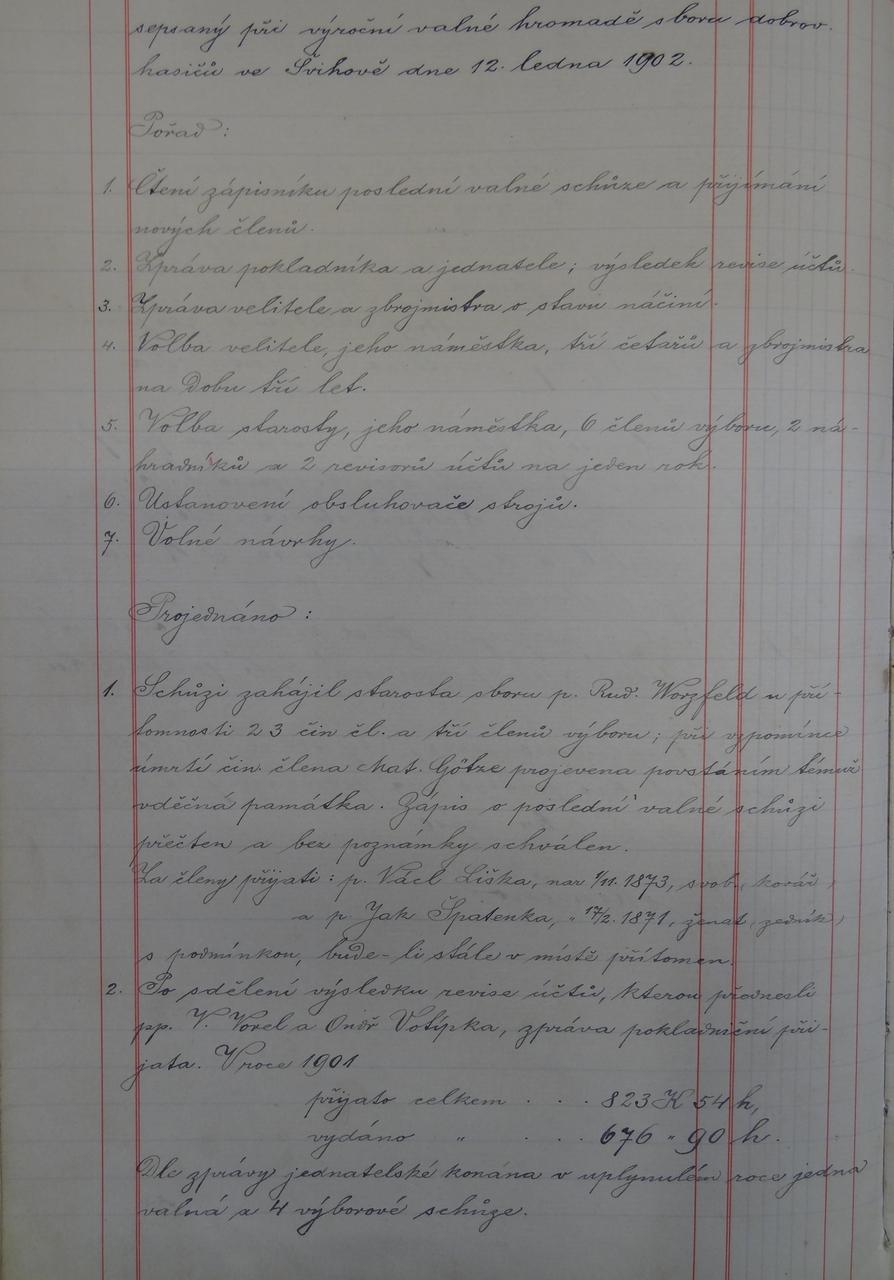 sepsaný při výroční valné hromadě sboru dobrov.
hasičů ve Švihově dne 12. ledna 1902.
Pořad:
1. Čtení zápisníku poslední valné schůze a přijímání
nových členů.
2. Zpráva pokladníka a jednatele; výsledek revise účtů.
3. Zpráva velitele a zbrojmistra o stavu náčiní.
4. Volba velitele, jeho náměstka, tří četařů a zbrojmistra
na dobu tří let.
5. Volba starosty, jeho náměstka, 6 členů výboru, 2 ná-
hradníků a 2 revisorů účtů na jeden rok.
6. Ustanovení obsluhovače strojů.
7. Volné návrhy.
Projednáno:
1. Schůzi zahájil starosta sboru p. Rud. Worzfeld u pří-
tomnosti 23 čin čl. a tří členů výboru; při vzpomínce
úmrtí čin. člena Mat. Götze projevena povstáním témuž
vděčná památka. Zápis o poslední valné schůzi
přečten a bez poznámky schválen.
Za členy přijati: p. Václ Liška, nar 1/11. 1873, svob., kovář,
a p. Jak Špatenka, „ 17/2. 1871, ženat, zedník,
s podmínkou, bude-li stále v místě přítomen.
2. Po sdělení výsledku revise účtů, kterou přednesli
pp. V. Vorel a Ondř Votípka, zpráva pokladniční při-
jata. V roce 1901
přijato celkem . . . 823 K 54 h,
vydáno „ . . . 676 „ 90 h.
Dle zprávy jednatelské konána v uplynulém roce jedna
valná a 4 výborové schůze.